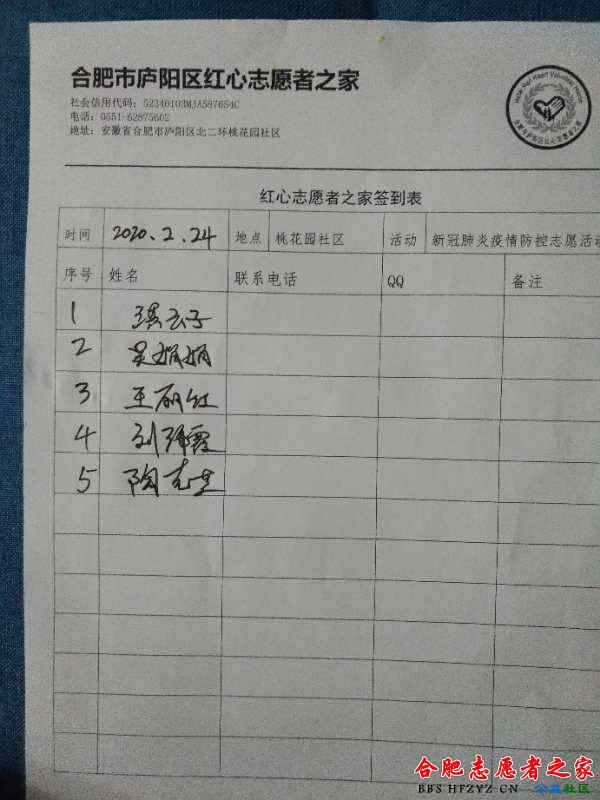 合肥市庐阳区红心志愿者之家
社会信用代码：52340103MJA587654C
电话：0551-62875602
地址：安徽省合肥市庐阳区北二环桃花园社区
Hefei Red Heart Volunteer Home
合肥市庐阳区红心志愿者之家
红心志愿者之家签到表
时间 2020.2.24 地点 桃花园社区 活动 新冠肺炎疫情防控志愿活
序号 姓名 联系电话 QQ 备注
1
2 吴娟娟
3 王丽红
4 刘
5 陶志生
合肥志愿者之家
BBS HFZYZ CN 公益社区